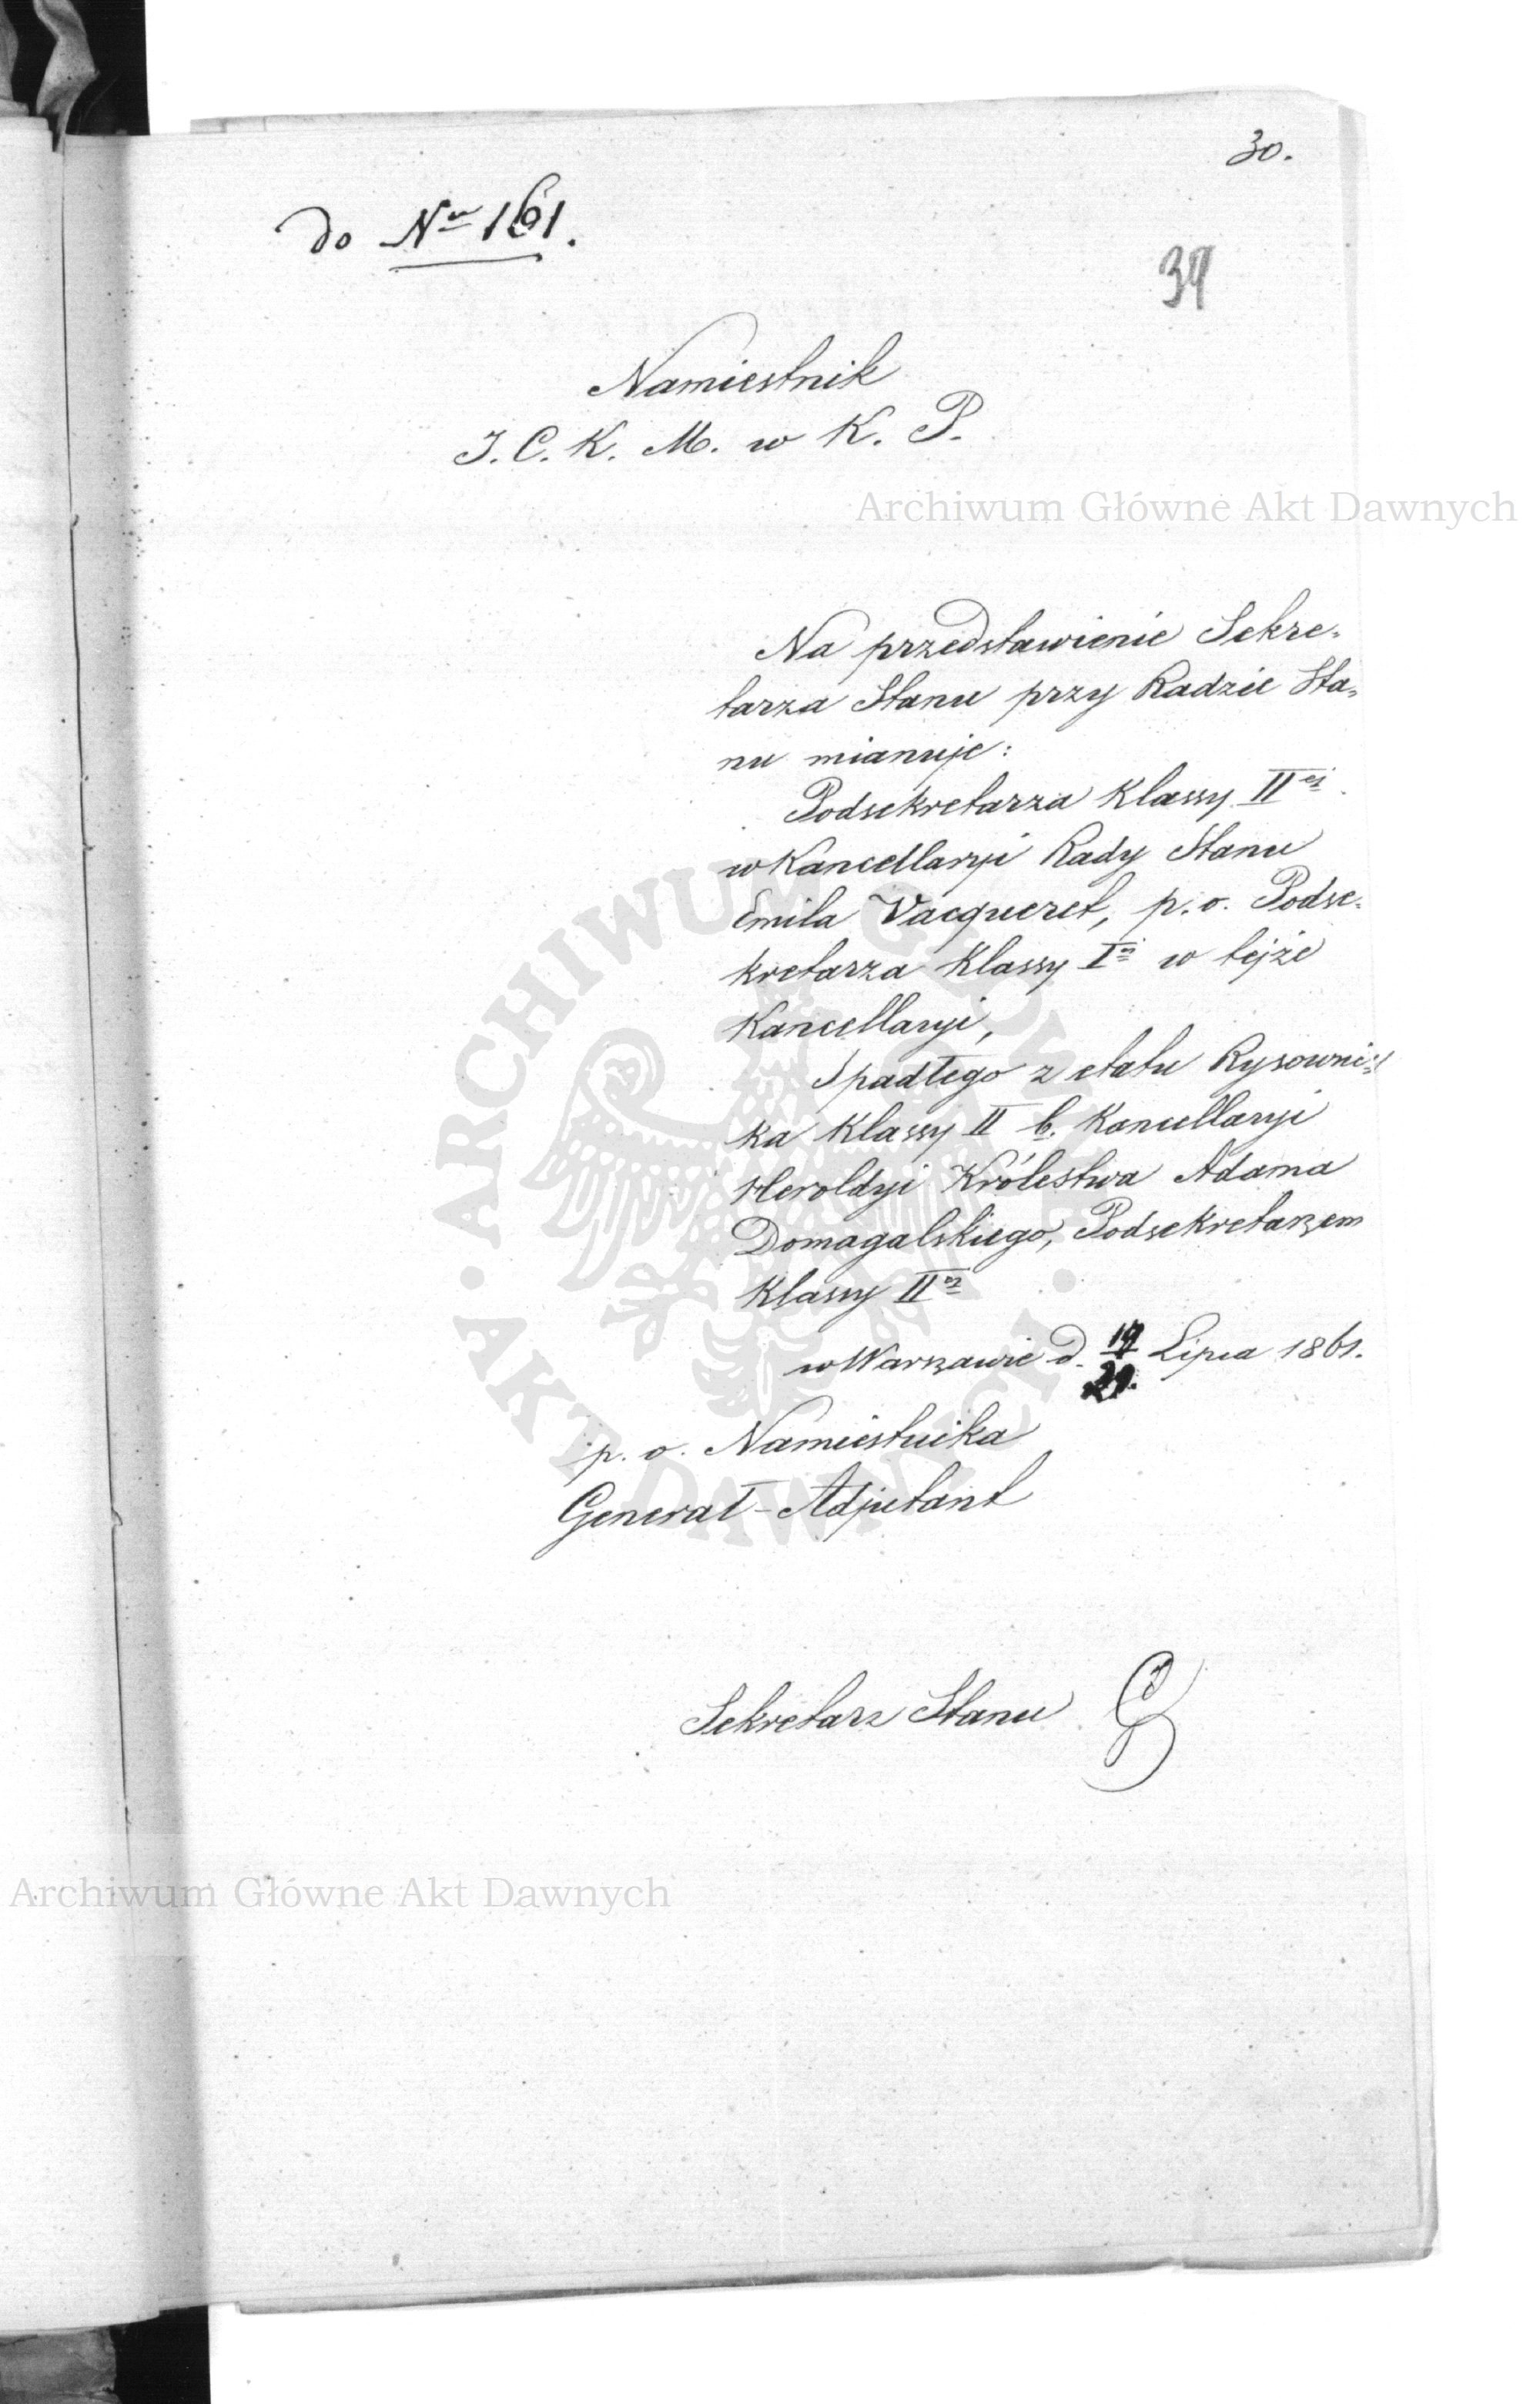 30.
do Nr 161.
39
Namiestnik
J. C. K. M. w K. P.
Archiwum Główne Akt Dawnych
Na przedstawienie Sekre-
tarza Stanu przy Radzie Sta-
nu mianuje:
Podsekretarza Klassy IIej
w Kancellaryi Rady Stanu
Emila Vacqueret, p. o. Podse-
kretarza Klassy Iej w tejże
Kancellaryi,
Spadłego z etatu Rysowni-
ka Klassy II b. Kancellaryi
Heroldyi Królestwa Adama
Domagalskiego, Podsekretarzem
Klassy IIej
w Warszawie d. Lipca 1861.
p. o. Namiestnika
Generał-Adjutant
Sekretarz Stanu
Archiwum Główne Akt Dawnych
ARCHIWUM GŁÓWNE AKT DAWNYCH